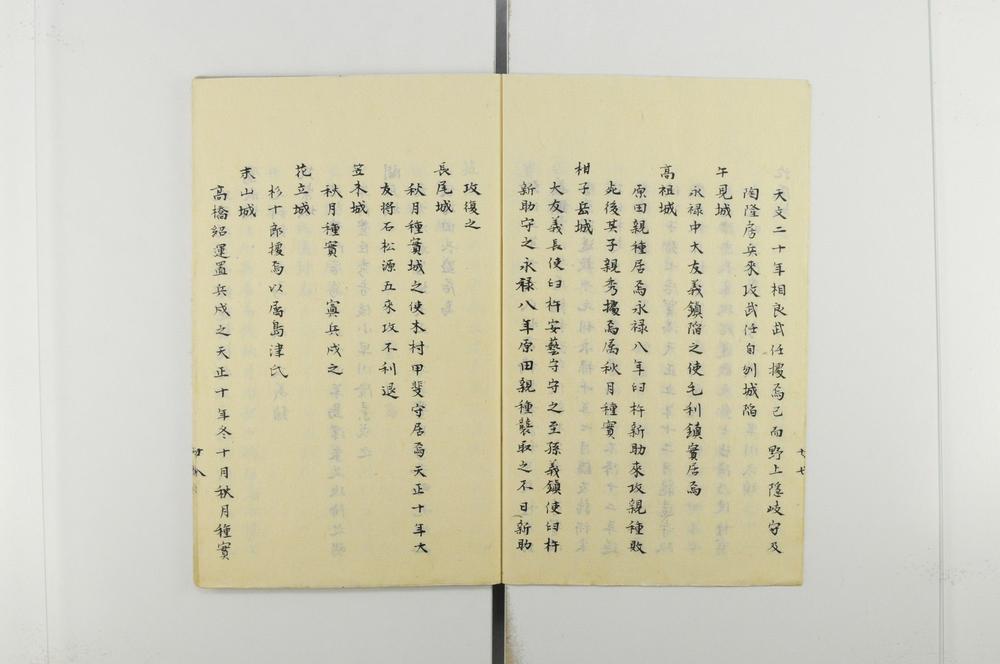 天文二十年相良武任據焉已而野上隱岐守及
陶隆房兵來攻武任自刎城陷
午見城
永禄中大友義鎮陷之使毛利鎮實居焉
高祖城
原田親種居焉永禄八年臼杵新助來攻親種敗
死後其子親秀據焉属秋月種實
柑子岳城
大友義長使臼杵安藝守守之至孫義鎮使臼杵
新助守之永禄八年原田親種襲取之不日新助
攻復之
長尾城
秋月種實城之使木村甲斐守居焉天正十年大
友将石松源五來攻不利退
笠木城
秋月種實寘兵戍之
花立城
杉十郎據焉以属島津氏
末山城
高橋紹運置兵戍之天正十年冬十月秋月種實
廿七
廿八